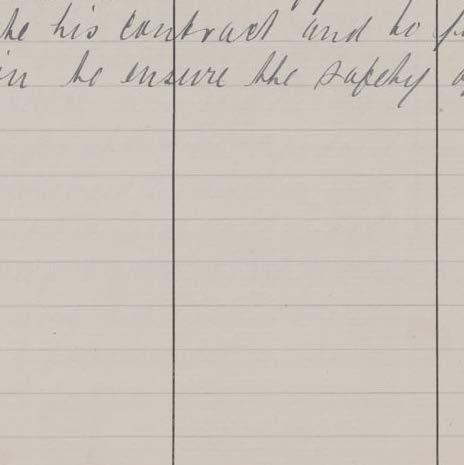 his contract and to
to ensure the safety